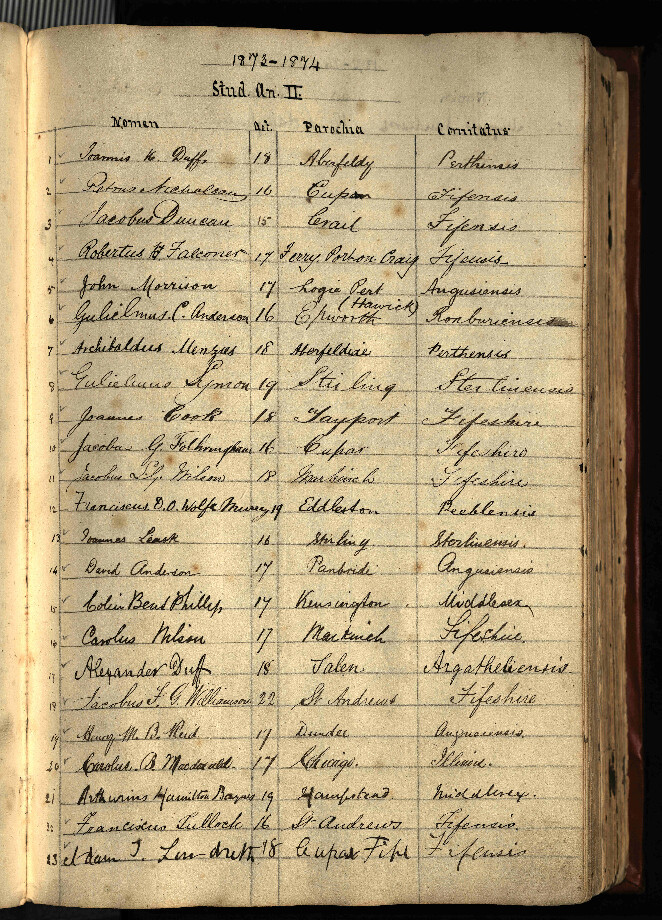 1873-1874
Stud. An. II.
Nomen Aet. Parochia Comitatus
1 Joannis H. Duffs 18 Aberfeldy Perthensis
2 Petrus Nicholson 16 Cupar Fifensis
3 Jacobus Duncan 15 Crail Fifensis
4 Robertus H Falconer 17 Ferry Port-on-Craig Fifensis
5 John Morrison 17 Logie Pert Angusiensis
(Hawick)
6 Gulielmus C. Anderson 16 Epworth Roxburiensis
7 Archibaldus Menzies 18 Perthensis
8 Gulielmus Symon 19 Stirling Sterlinensis
9 Joannes Cook 18 Tayport Fifeshire
10 Jacobus G. Fothringham 16 Cupar Fifeshire
11 Jacobus Wilson 18 Markinch Fifeshire
12 Franciscus D.O. Wolfe Murray 19 Eddleston Peeblensis
13 Joannes Leask 16 Stirling Sterlinensis.
14 David Anderson 17 Panbride Angusiensis
15 Colin Bent Phillip 17 Kensington. Middlesex
16 Carolus Wilson 17 Markinch Fifeshire.
17 Alexander Duff 18 Salen Argatheliensis.
18 Jacobus F. G. Williamson 22 St Andrews Fifeshire
19 Henry M. B. Reid 17 Dundee Angusiensis.
20 Carolus. B Macdonald. 17 Chicago. Illinois.
21 Arthurius Hamilton Baynes 19 Hampstead Middlesex.
22 Franciscus Tulloch 16 St Andrews Fifensis.
23 Adam T. Landreth 18 Cupar Fife Fifensis